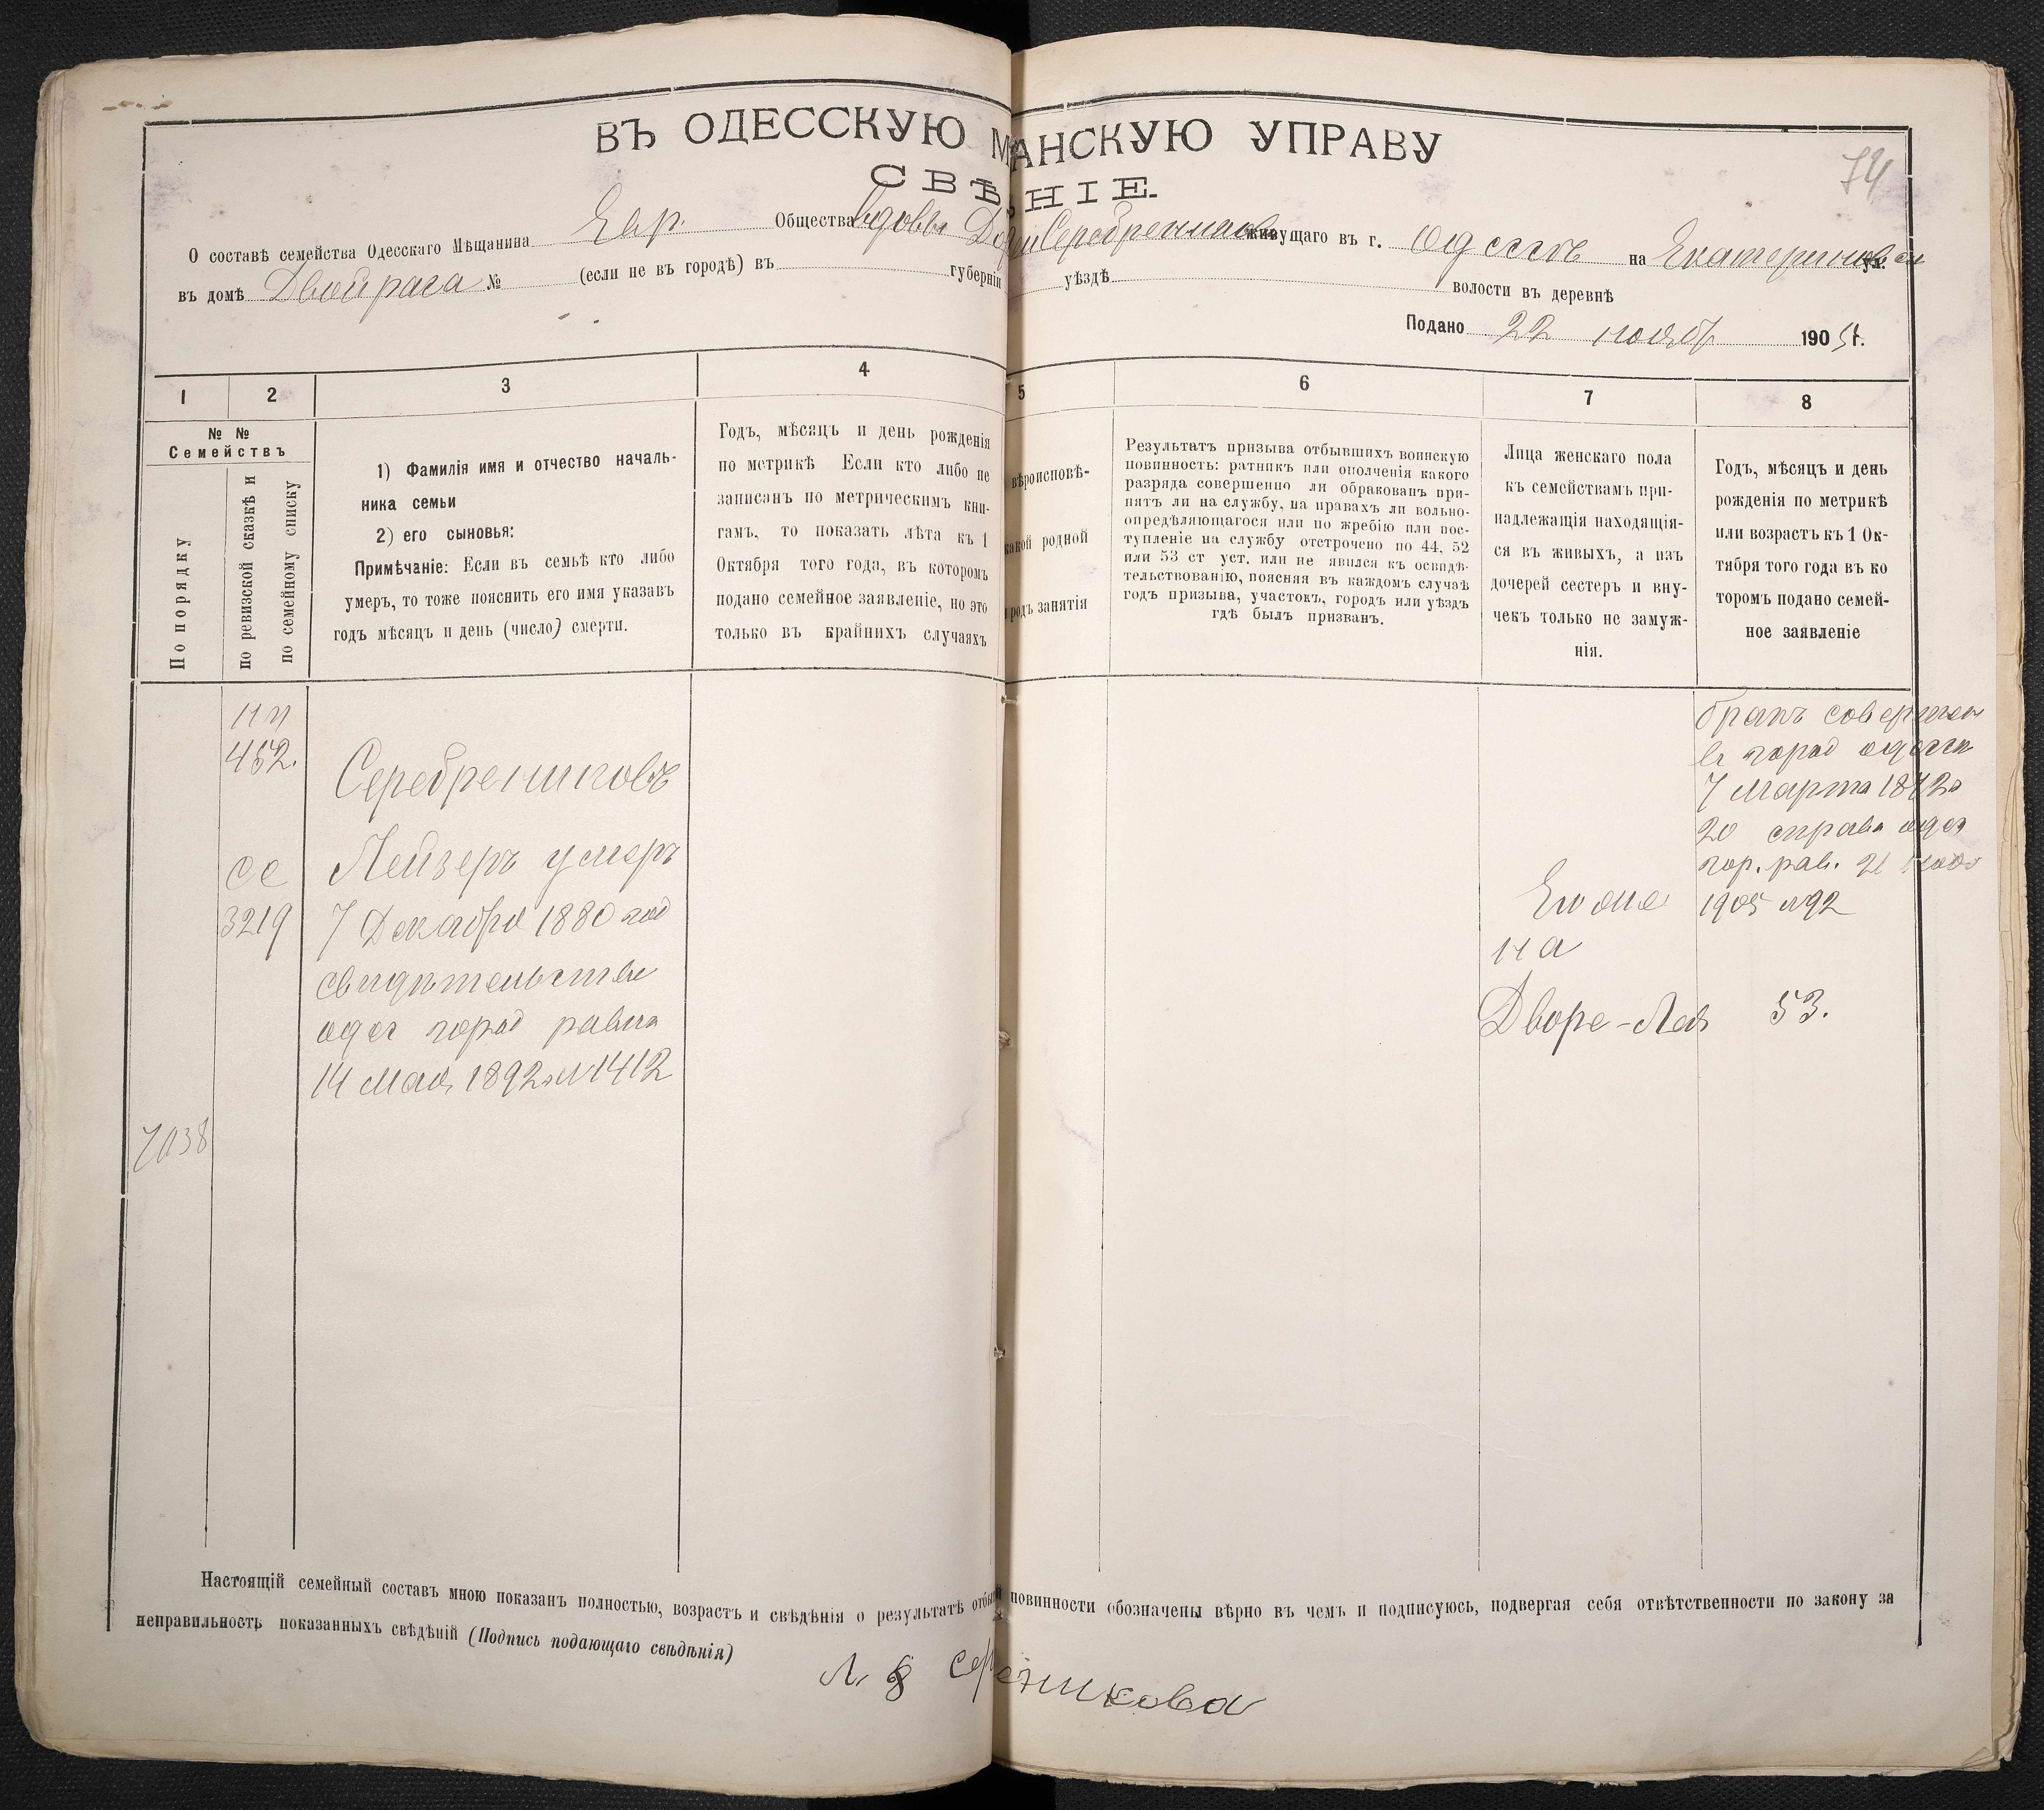 ВЪ ОДЕССКУЮ М АНСКУЮ УПРАВУ
74
СВѢ НІЕ.
О составѣ семейства Одесскаго Мѣщанина Евр. Общества вдовы Серебренников живущаго въ г. Одессѣ на Екатерининск ул.
въ домѣ Двойраса № (если не въ городѣ) въ губерніи уѣздѣ волости въ деревнѣ
Подано 22 нояб 1905 г.
1 2 3 4 5 6 7 8
№ №
Семействъ
По порядку
по ревизской сказкѣ и
по семейному списку
1) Фамилія имя и отчество началь-
ника семьи
2) его сыновья:
Примѣчаніе: Если въ семьѣ кто либо
умеръ, то тоже пояснить его имя указавъ
годъ мѣсяцъ и день (число) смерти.
Годъ, мѣсяцъ и день рожденія
по метрикѣ Если кто либо не
записанъ по метрическимъ кни-
гамъ, то показать лѣта къ 1
Октября того года, въ которомъ
подано семейное заявленіе, но это
только въ крайнихъ случаяхъ
вѣроисповѣ-
какой родной
родъ занятія
Результатъ призыва отбывшихъ воинскую
повинность: ратникъ или ополченія какого
разряда совершенно ли обракованъ при-
нятъ ли на службу, на правахъ ли вольно-
опредѣляющагося или по жребію или пос-
тупленіе на службу отстрочено по 44, 52
или 53 ст уст. или не явился къ освидѣ-
тельствованію, поясняя въ каждомъ случаѣ
годъ призыва, участокъ, городъ или уѣздъ
гдѣ былъ призванъ.
Лица женскаго пола
къ семействамъ при-
надлежащія находящія-
ся въ живыхъ, а изъ
дочерей сестеръ и вну-
чекъ только не замуж-
нія.
Годъ, мѣсяцъ и день
рожденія по метрикѣ
или возрастъ къ 1 Ок-
тября того года въ ко
торомъ подано семей-
ное заявленіе
452.
Серебренниковъ
се
3219
Лейзеръ умеръ
7 Декабря 1880 год
свидѣтельство
одес город равина
14 Мая 1892 № 1412
7038
бракъ совершен
в город одесса
7 Марта 1872
20 справа одес
гор. рав. 21 нояб
1905 №92
Его жена
Двора-Лея 53.
Настоящій семейный составъ мною показанъ полностью, возрастъ и свѣдѣнія о результатѣ отбы повинности обозначены вѣрно въ чемъ и подписуюсь, подвергая себя отвѣтственности по закону за
неправильность показанныхъ свѣдѣній (Подпись подающаго свѣдѣнія)
Сер еникова